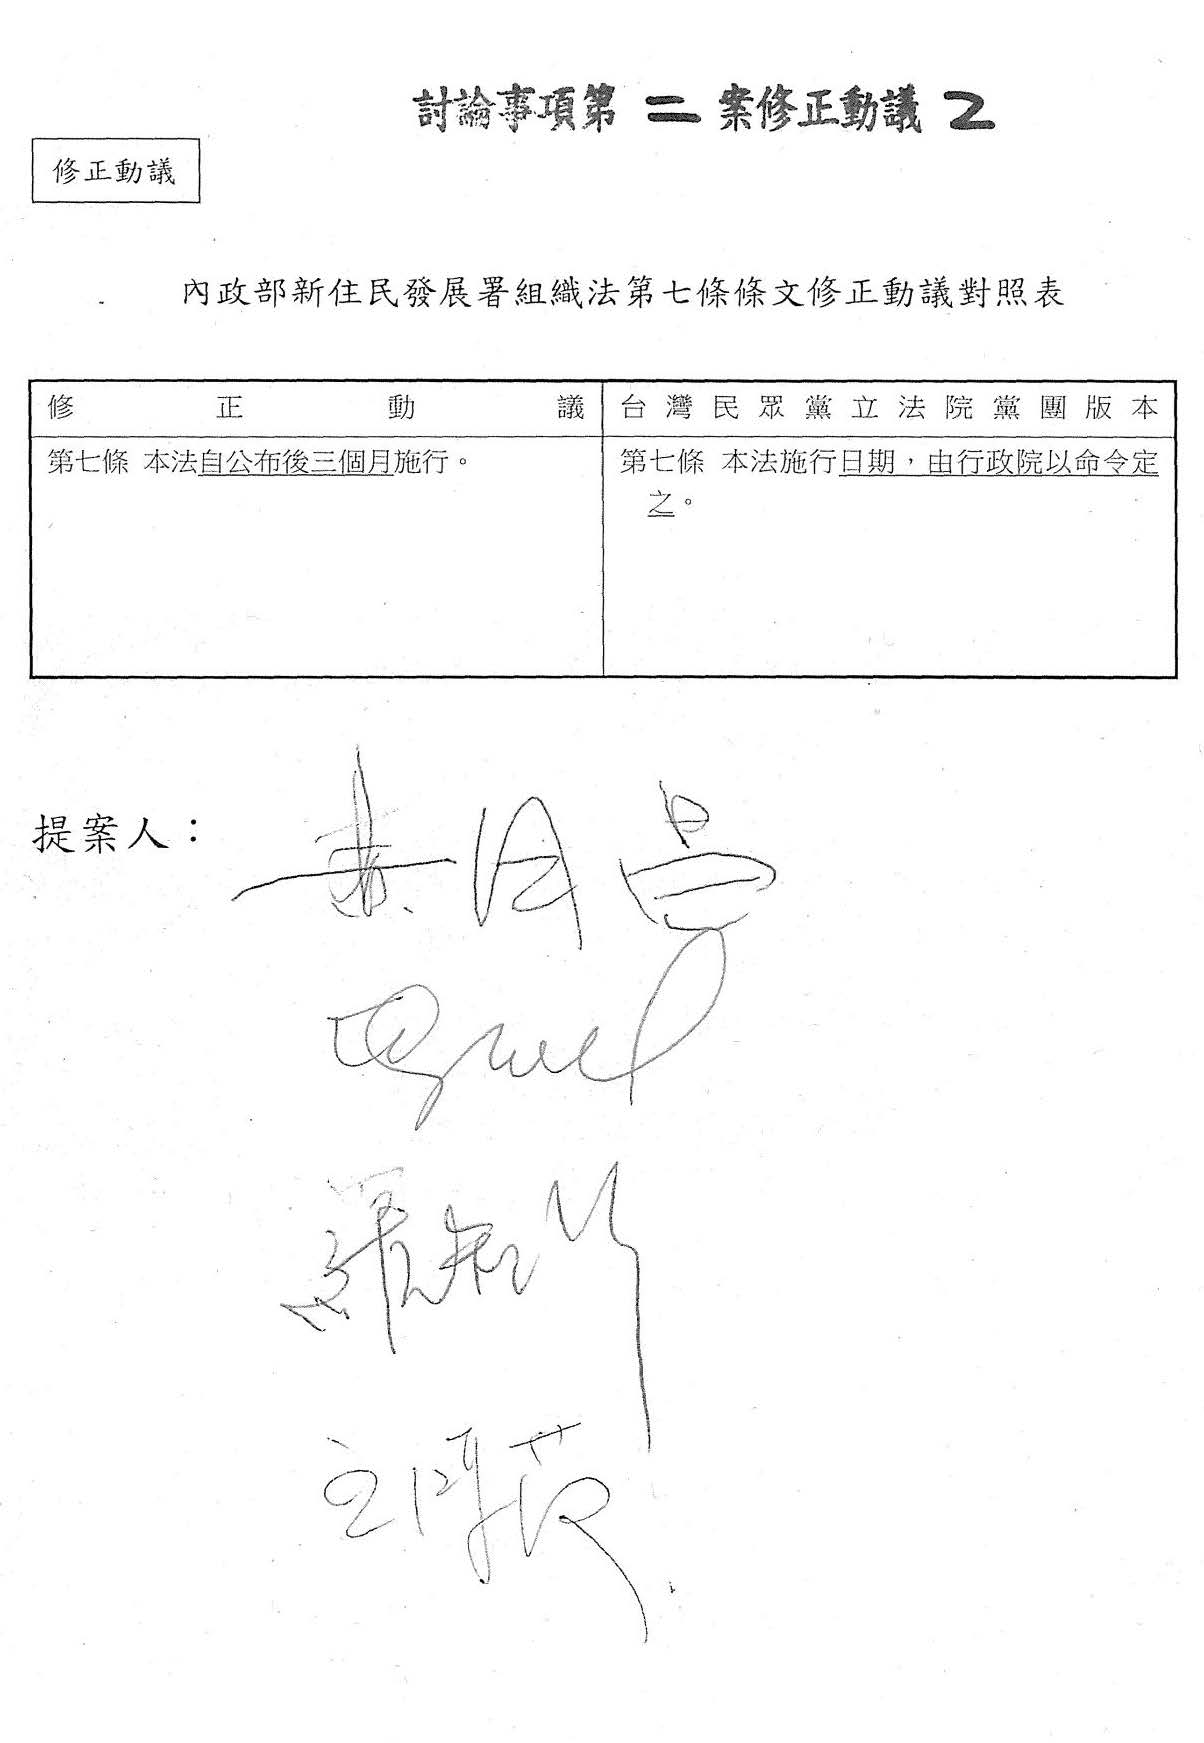 討論事項第二案修正動議2
修正動議
內政部新住民發展署組織法第七條條文修正動議對照表
修正動議
台灣民眾黨立法院黨團版本
第七條 本法自公布後三個月施行。
第七條 本法施行日期,由行政院以命令定
之。
提案人:
黃國昌
羅智